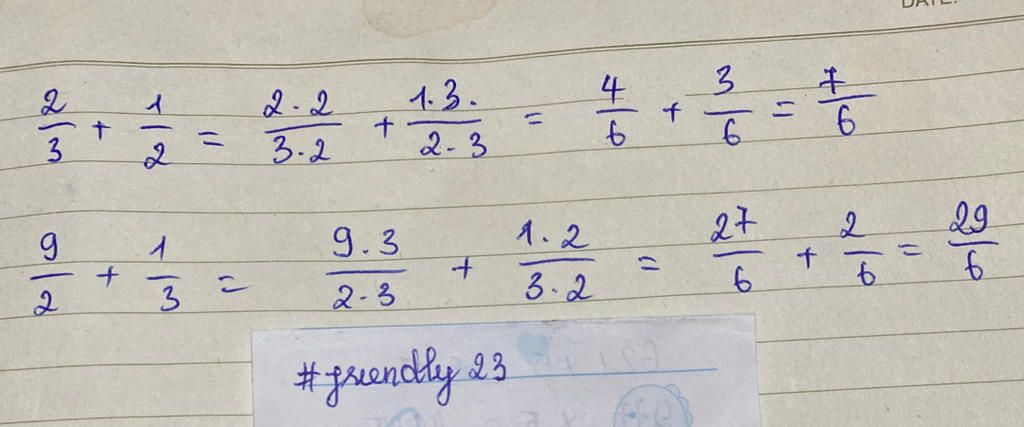 DATE:
2/3 + 1/2 = 2·2/3·2 + 1.3./2·3 = 4/6 + 3/6 = 7/6
9/2 + 1/3 = 9.3/2·3 + 1.2/3·2 = 27/6 + 2/6 = 29/6
#friendly 23